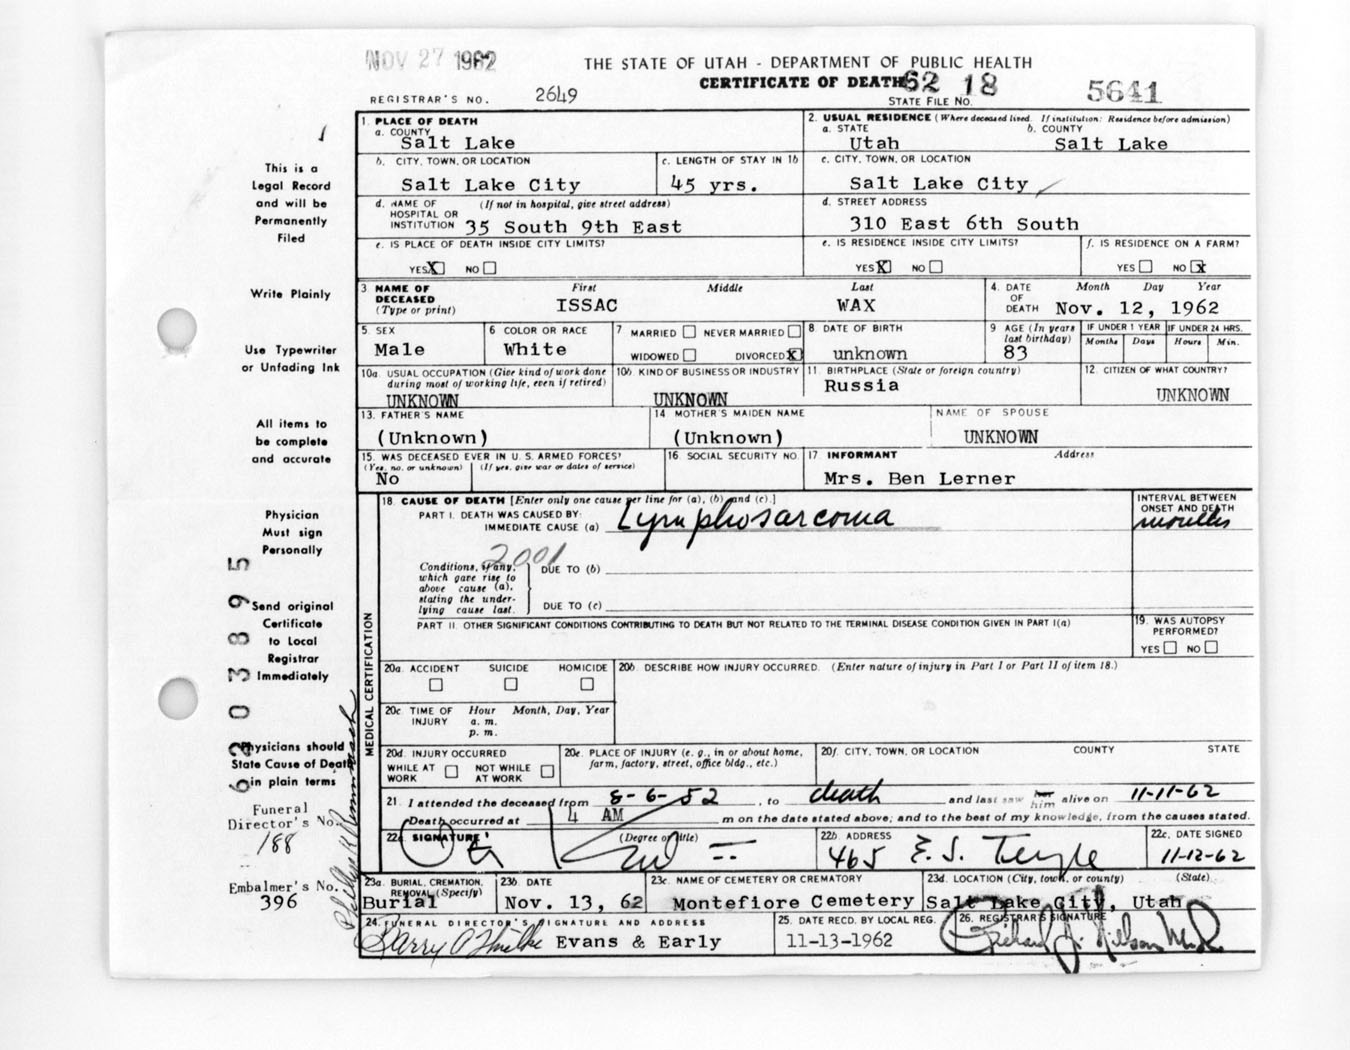 NOV 27 1962
THE STATE OF UTAH - DEPARTMENT OF PUBLIC HEALTH
CERTIFICATE OF DEATH
62 18 5641
REGISTRAR'S NO. 2649
STATE FILE NO.
This is a
Legal Record
and will be
Permanently
Filed
Write Plainly
Use Typewriter
or Unfading Ink
All items to
be complete
and accurate
Physician
Must sign
Personally
Send original
Certificate
to Local
Registrar
Immediately
Physicians should
State Cause of Death
in plain terms
Funeral
Director's No.
188
Embalmer's No.
396
1. PLACE OF DEATH
a. COUNTY
Salt Lake
2. USUAL RESIDENCE (Where deceased lived. If institution: Residence before admission)
a. STATE b. COUNTY
Utah Salt Lake
b. CITY, TOWN, OR LOCATION
Salt Lake City
c. LENGTH OF STAY IN 1b
45 yrs.
c. CITY, TOWN, OR LOCATION
Salt Lake City
d. NAME OF (If not in hospital, give street address)
HOSPITAL OR
INSTITUTION 35 South 9th East
d. STREET ADDRESS
310 East 6th South
e. IS PLACE OF DEATH INSIDE CITY LIMITS?
YES X NO
e. IS RESIDENCE INSIDE CITY LIMITS?
YES X NO
f. IS RESIDENCE ON A FARM?
YES NO X
3. NAME OF DECEASED (Type or print)
First Middle Last
ISSAC WAX
4. DATE OF DEATH
Month Day Year
Nov. 12, 1962
5. SEX
Male
6 COLOR OR RACE
White
7 MARRIED NEVER MARRIED
WIDOWED DIVORCED X
8 DATE OF BIRTH
unknown
9 AGE (In years last birthday)
83
IF UNDER 1 YEAR
Months Days
IF UNDER 24 HRS.
Hours Min.
10a. USUAL OCCUPATION (Give kind of work done
during most of working life, even if retired)
UNKNOWN
10b. KIND OF BUSINESS OR INDUSTRY
UNKNOWN
11. BIRTHPLACE (State or foreign country)
Russia
12. CITIZEN OF WHAT COUNTRY?
UNKNOWN
13. FATHER'S NAME
(Unknown)
14 MOTHER'S MAIDEN NAME
(Unknown)
NAME OF SPOUSE
UNKNOWN
15. WAS DECEASED EVER IN U. S. ARMED FORCES?
(Yes, no, or unknown) (If yes, give war or dates of service)
No
16 SOCIAL SECURITY NO.
17 INFORMANT Address
Mrs. Ben Lerner
18 CAUSE OF DEATH [Enter only one cause per line for (a), (b) and (c).]
PART I. DEATH WAS CAUSED BY:
IMMEDIATE CAUSE (a) Lymphosarcoma
INTERVAL BETWEEN
ONSET AND DEATH
months
2001
Conditions, if any,
which gave rise to
above cause (a),
stating the under-
lying cause last.
DUE TO (b)
DUE TO (c)
PART II. OTHER SIGNIFICANT CONDITIONS CONTRIBUTING TO DEATH BUT NOT RELATED TO THE TERMINAL DISEASE CONDITION GIVEN IN PART I(a)
19. WAS AUTOPSY
PERFORMED?
YES NO
MEDICAL CERTIFICATION
20a. ACCIDENT SUICIDE HOMICIDE
20b. DESCRIBE HOW INJURY OCCURRED. (Enter nature of injury in Part I or Part II of item 18.)
20c. TIME OF INJURY
Hour Month, Day, Year
a. m.
p. m.
20d. INJURY OCCURRED
WHILE AT WORK NOT WHILE AT WORK
20e. PLACE OF INJURY (e. g., in or about home,
farm, factory, street, office bldg., etc.)
20f. CITY, TOWN, OR LOCATION COUNTY STATE
21. I attended the deceased from 8-6-52, to death and last saw her him alive on 11-11-62
Death occurred at 4 AM m on the date stated above; and to the best of my knowledge, from the causes stated.
22a SIGNATURE (Degree or title)
22b ADDRESS
465 E. S. Temple
22c. DATE SIGNED
11-12-62
23a. BURIAL, CREMATION,
REMOVAL (Specify)
Burial
23b. DATE
Nov. 13, 62
23c. NAME OF CEMETERY OR CREMATORY
Montefiore Cemetery
23d. LOCATION (City, town, or county) (State)
Salt Lake City, Utah
24. FUNERAL DIRECTOR'S SIGNATURE AND ADDRESS
Evans & Early
25. DATE RECD. BY LOCAL REG.
11-13-1962
26. REGISTRAR'S SIGNATURE